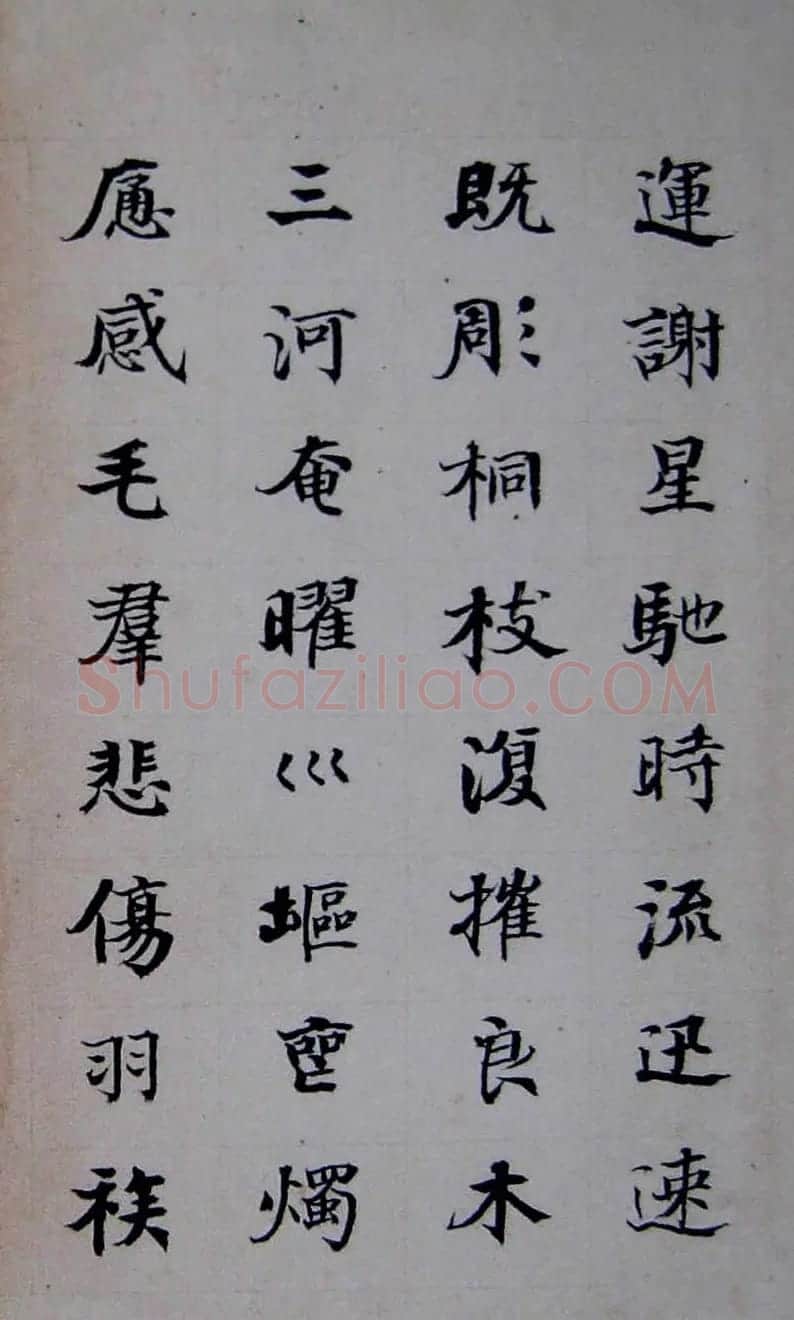 運謝星馳時流迅速
既彫桐枝復摧良木
三河奄曜巛塸燭
應感毛羣悲傷羽族
Shufaziliao.COM